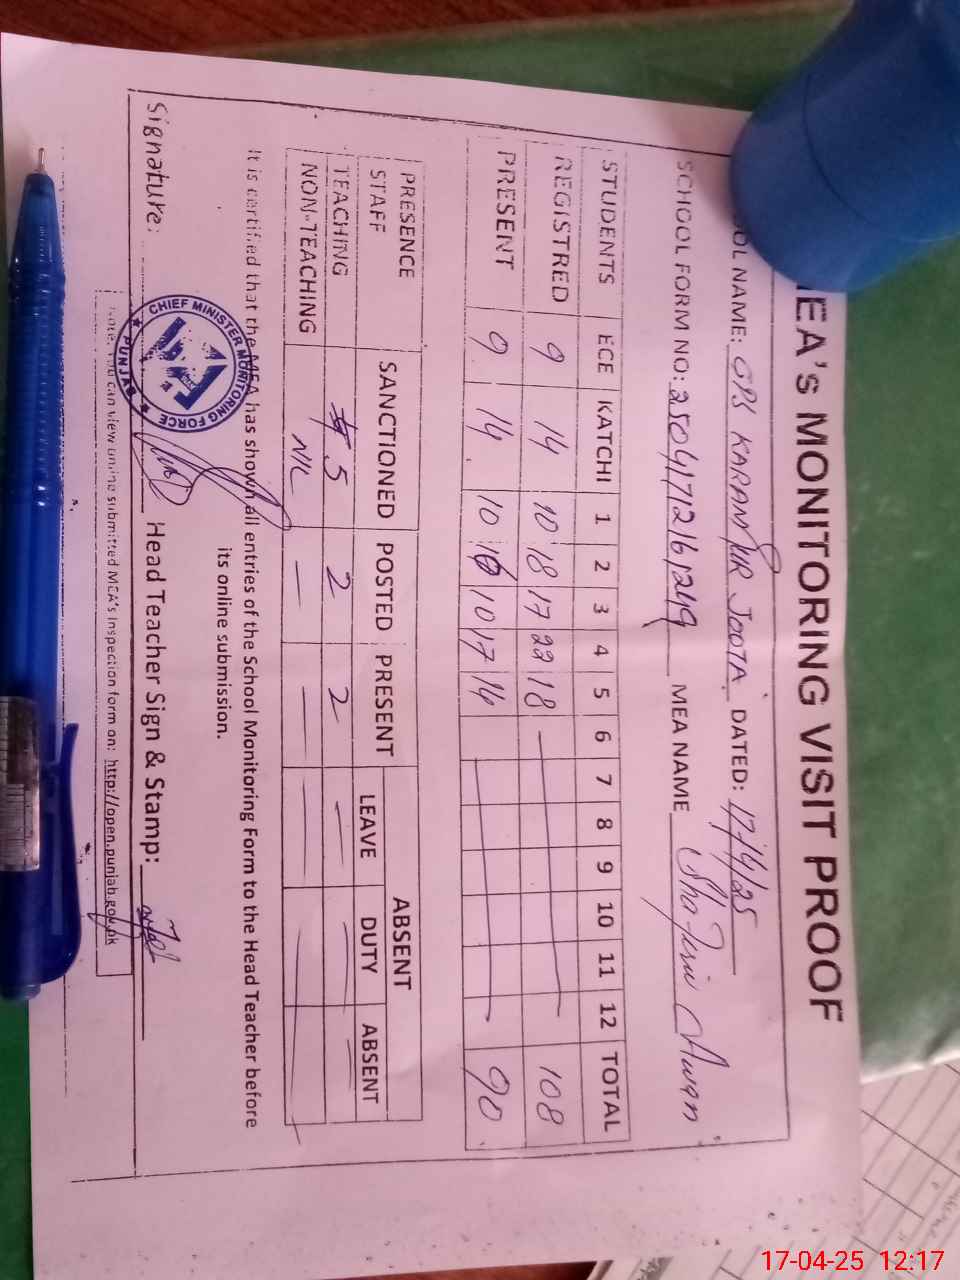 EA's MONITORING VISIT PROOF
OOL NAME: GPS KARAMPUR JOOTA. DATED: 17/4/25
SCHOOL FORM NO: 25041712161249 MEA NAME Awan
STUDENTS ECE KATCHI 1 2 3 4 5 6 7 8 9 10 11 12 TOTAL
REGISTRED 9 14 10 18 17 22 18 108
PRESENT 9 14 10 16 10 17 14 90
PRESENCE STAFF SANCTIONED POSTED PRESENT ABSENT
LEAVE DUTY ABSENT
TEACHING 5 2 2 — — —
NON-TEACHING NIL — — — — —
It is certified that the MEA has shown all entries of the School Monitoring Form to the Head Teacher before
its online submission.
Signature: Head Teacher Sign & Stamp:
CHIEF MINISTER MONITORING FORCE
PUNJAB
Note: You can view online submitted MEA's Inspection form on: http://open.punjab.gov.pk
17-04-25 12:17